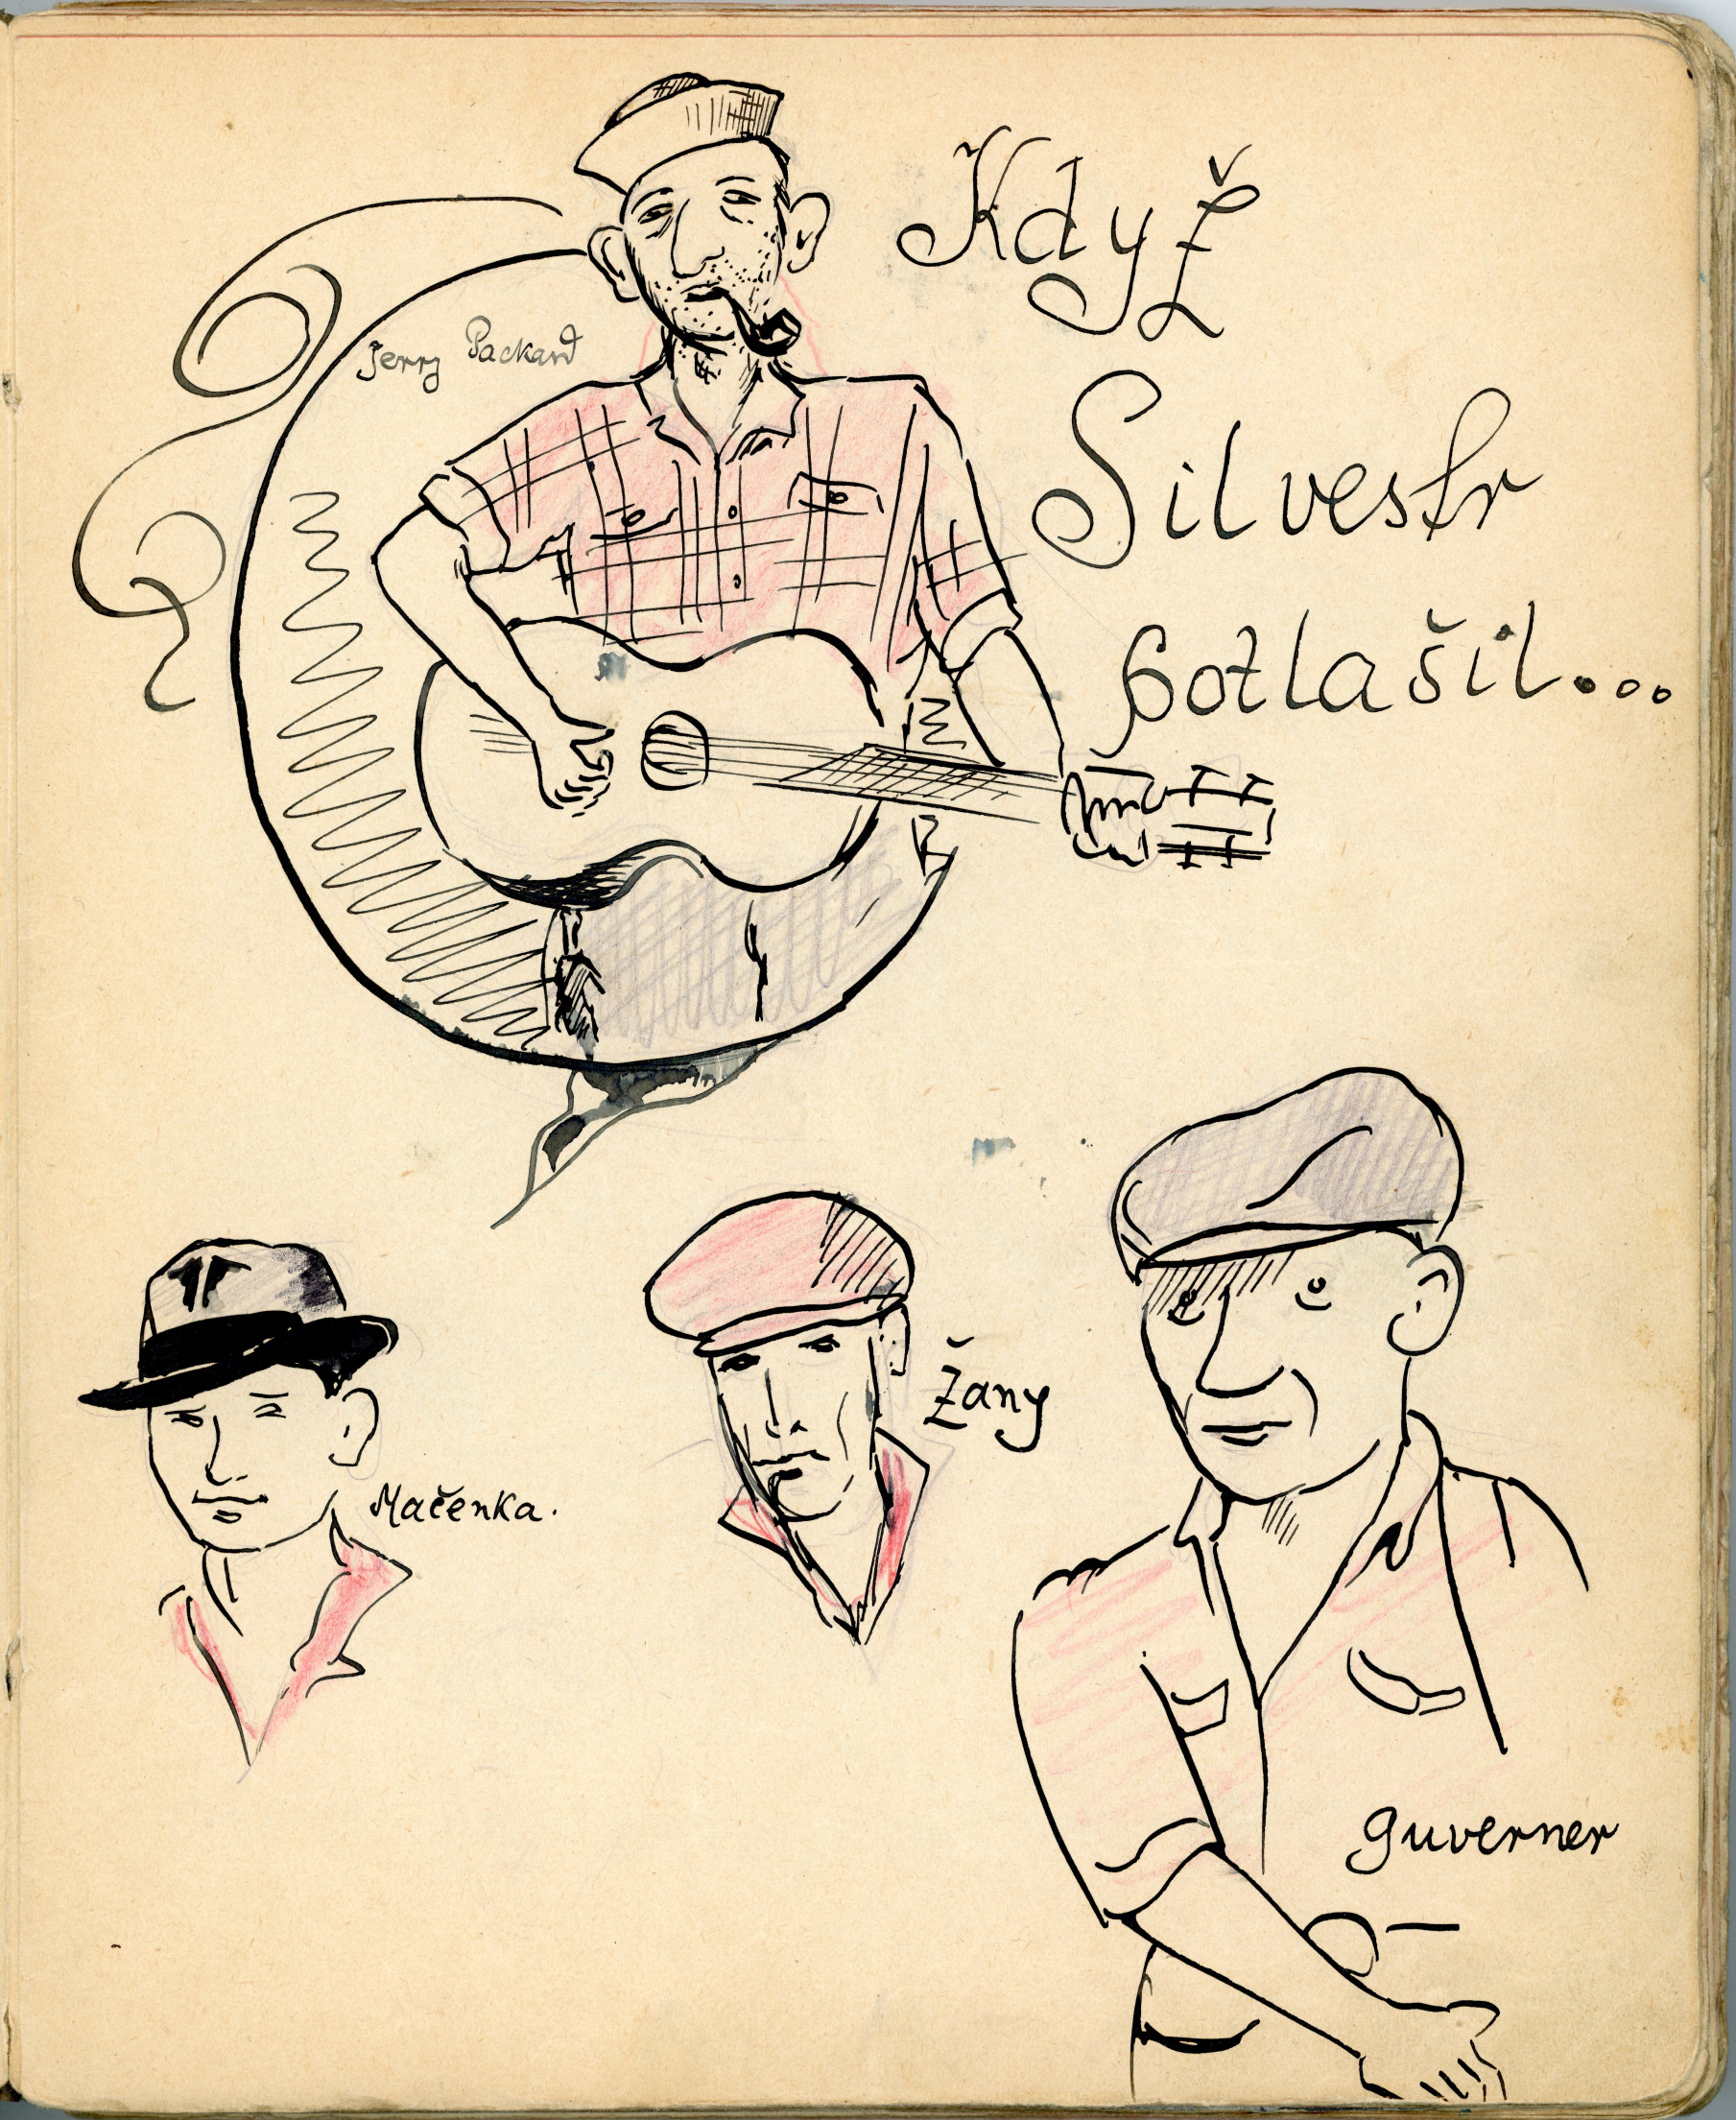 Když
Jerry Packard
Silvestr
potlašil...
Žany
Mačenka.
guverner